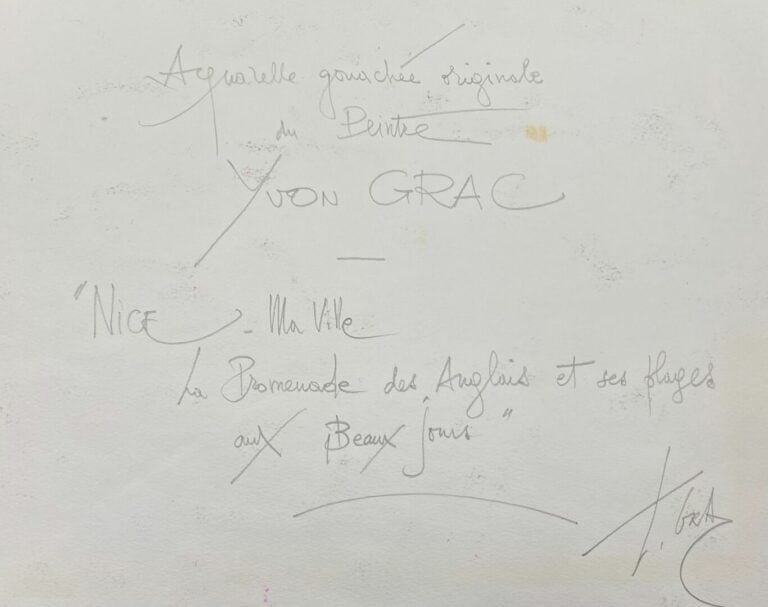 Aquarelle gouachée originale
du Peintre
YVON GRAC
"NICE - Ma Ville
La Promenade des Anglais et ses plages
aux Beaux jours"
Y. GRAC